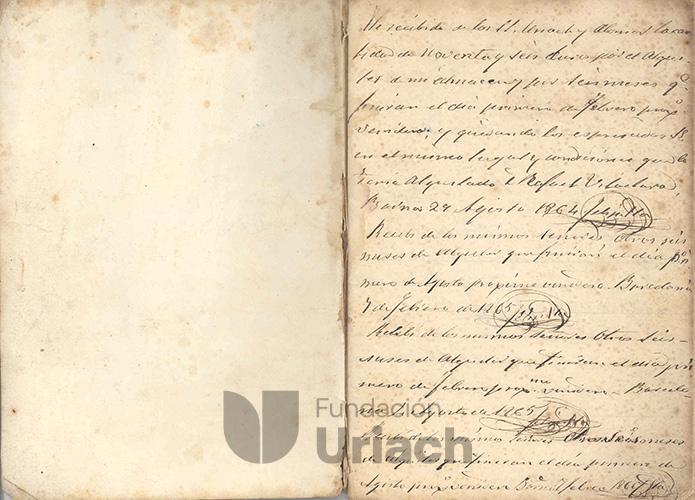 He recibido de los SS. Uriach y Alomar la can
tidad de noventa y seis duros por el Alqui
ler de mi almacen y por seis meses qº
finiran el dia primero de Febrero prox
venidero, y quedando los espresados SS.
en el mismo lugar y condiciones que le
tenia Alquilado D. Rafael
Barna 29 Agosto 1864
Recibi de los mismos Señores Otros seis
meses de Alquiler que finiran el dia pri
mero de Agosto proximo venidero Barcelona
7 de Febrero de 1865
Recibi de los mismos Señores Otros Seis
meses de Alquiler que finiran el dia pri
mero de febrero proxmo venidero - Barcelo
na Agosto de 1865
Recibi de los mismos Señores Otros Seis meses
de Alquiler que finiran el dia primero de
Agosto proxº venidero Barna febrero
Fundación
Uriach